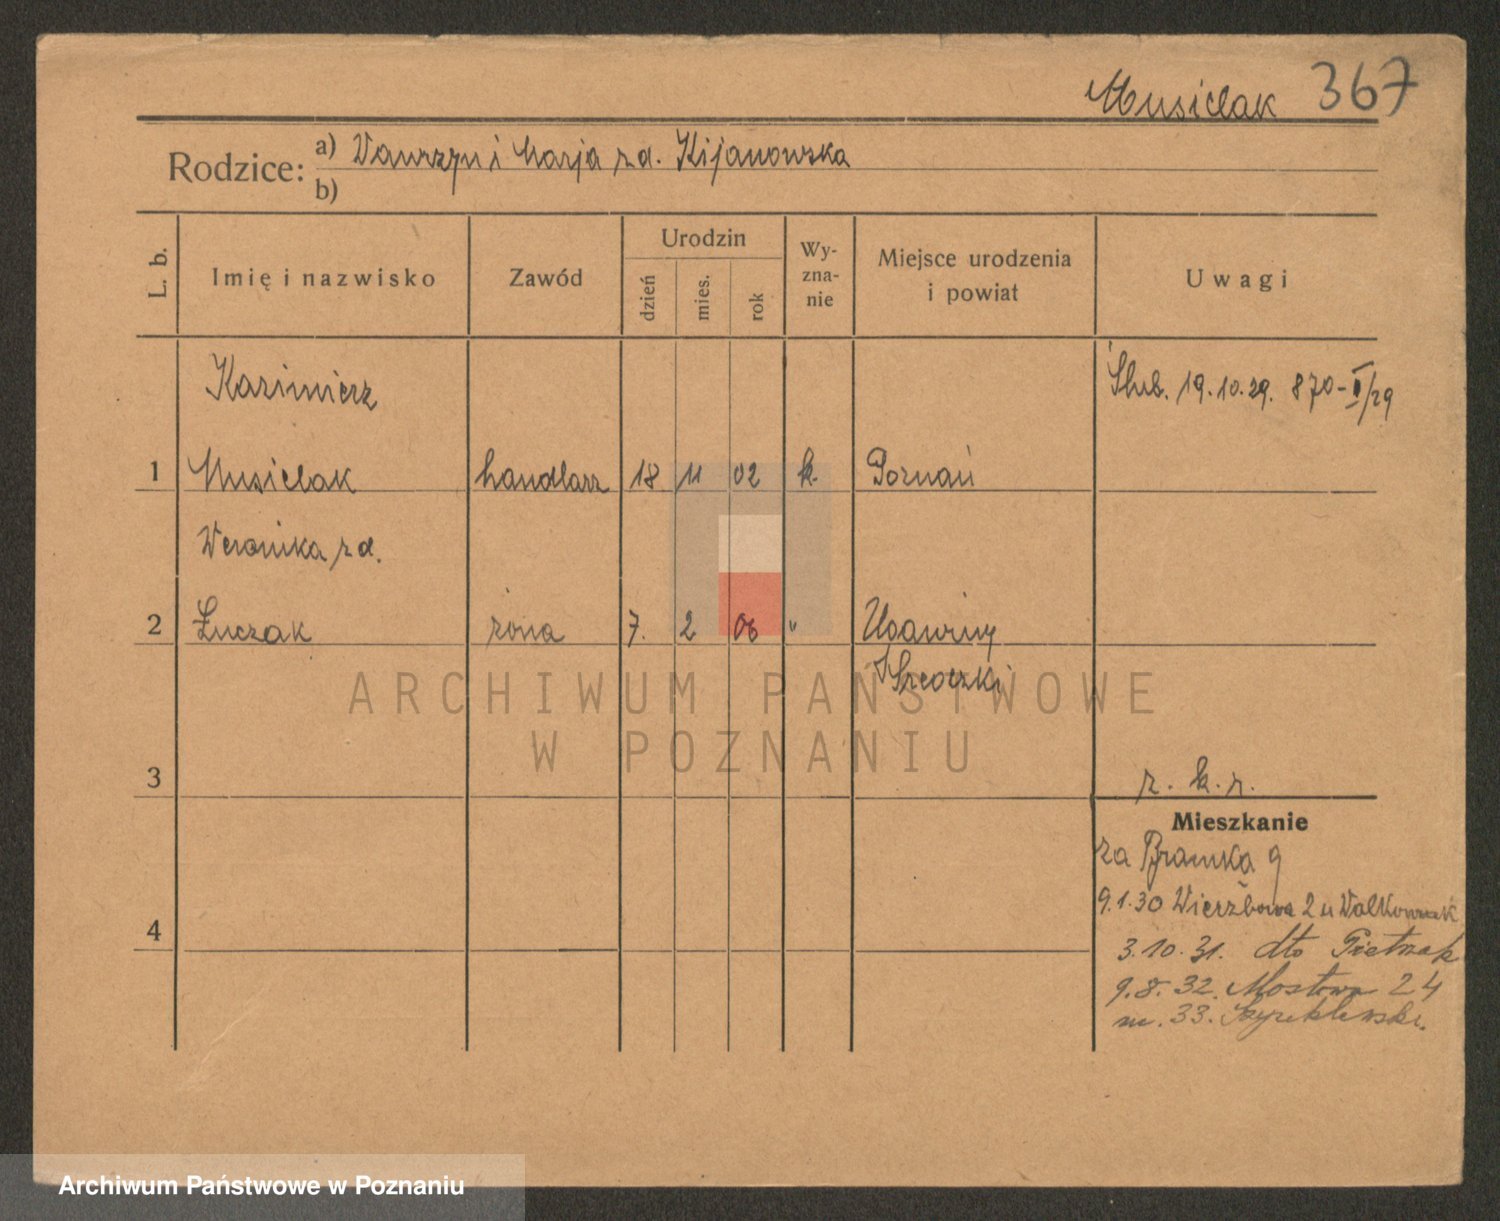 Musielak 367
Rodzice: a) Wawrzyn i Marja z d. Kijanowska
b)
L. b.
Imię i nazwisko
Zawód
Urodzin
dzień
mies.
rok
Wy-
zna-
nie
Miejsce urodzenia
i powiat
Uwagi
Kazimierz
Ślub. 19.10.29. 870-II/29
1 Musielak handlarz 18 11 02 k. Poznań
Weronika z d.
2 Łuczak żona 7. 2 06 "
ARCHIWUM PAŃSTWOWE
W POZNANIU
3
r. k. r.
Mieszkanie
za Bramką 9
9.1.30 Wierzbowa 2 u Walkowiak
4
3.10.31. dto Pietrzak
9.8.32. Mostowa 24
m. 33.
Archiwum Państwowe w Poznaniu